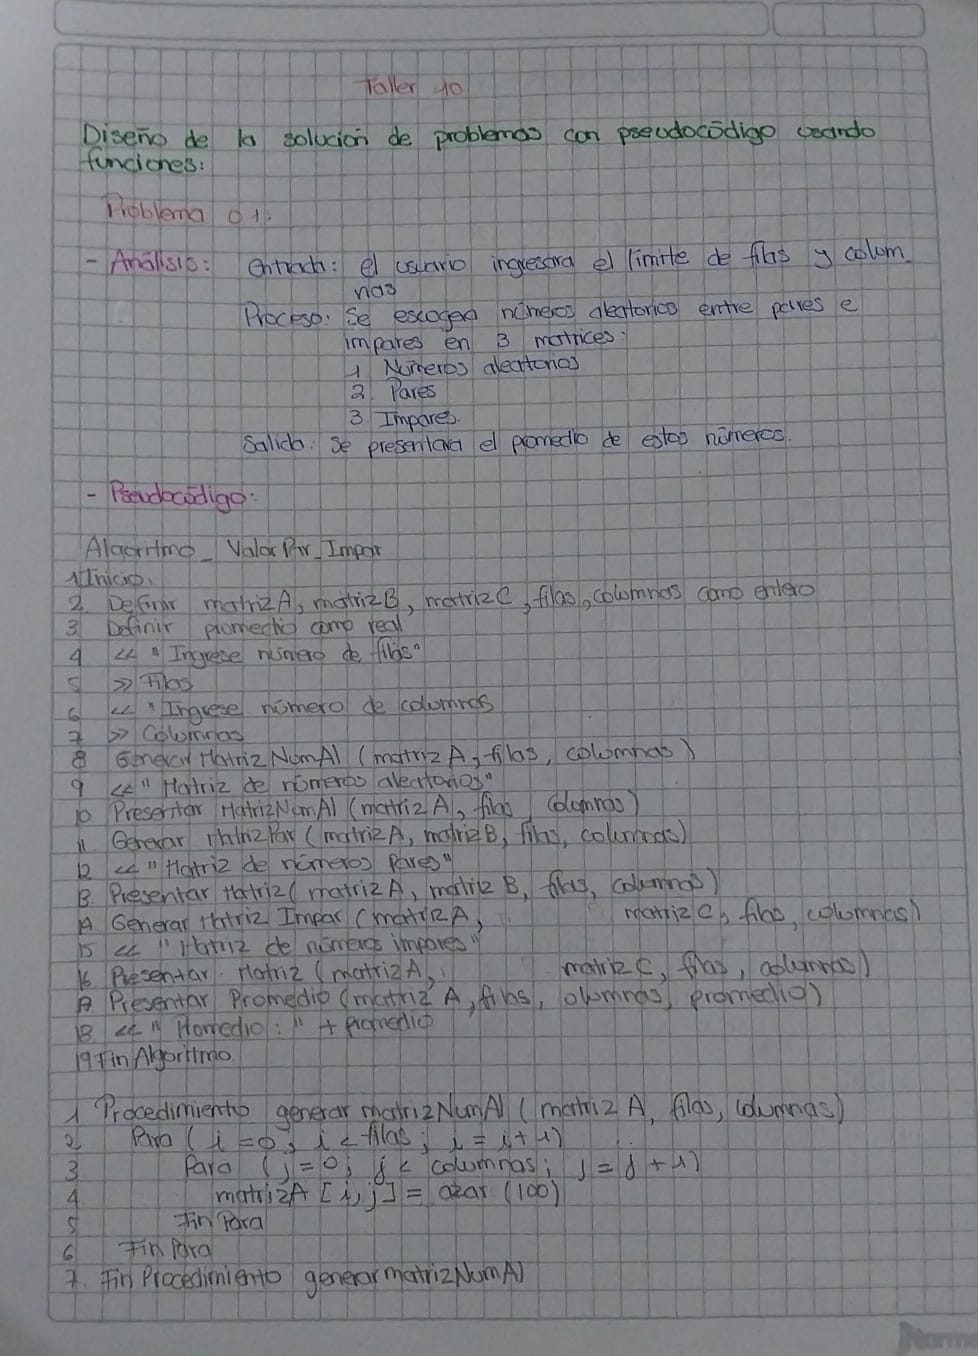 Taller 10
Diseño de la solución de problemas con pseudocódigo usando
funciones:
Problema 01:
- Análisis: Entrada: el usuario ingresara el límite de filas y colum
nas
Proceso: Se escogen números aleatorios entre pares e
impares en 3 matrices:
1 Números aleatorios
2. Pares
3 Impares.
Salida: Se presentara el promedio de estos números.
- Pseudocódigo:
Algoritmo_ ValorPar_Impar
1 Inicio.
2. Definir matrizA, matrizB, matrizC, filas, columnas como entero
3 Definir promedio como real
4 << "Ingrese número de filas"
5 >> Filas
6 << "Ingrese número de columnas
7 >> Columnas
8 Generar MatrizNumAl (matrizA, filas, columnas)
9 << "Matriz de números aleatorios"
10 Presentar MatrizNumAl (matrizA, filas columnas)
11 Generar MatrizPar (matrizA, matrizB, filas, columnas)
12 << "Matriz de números Pares"
13 Presentar Matriz (matrizA, matriz B, filas, columnas)
14 Generar Matriz Impar (matrizA, matrizC, filas, columnas)
15 << "Matriz de números impares"
16 Presentar Matriz (matrizA, matrizC, filas, columnas)
17 Presentar Promedio (matriz A, filas, columnas, promedio)
18 << "Promedio: " + promedio
19 Fin Algoritmo
1 Procedimiento generar matrizNumAl (matriz A, filas, columnas)
2 Para (i=0; i < filas; i = i+1)
3 Para (j=0; j < columnas; j = j+1)
4 matrizA [i,j] = azar (100)
5 Fin Para
6 Fin Para
7. Fin Procedimiento generarmatrizNumAl
Norma